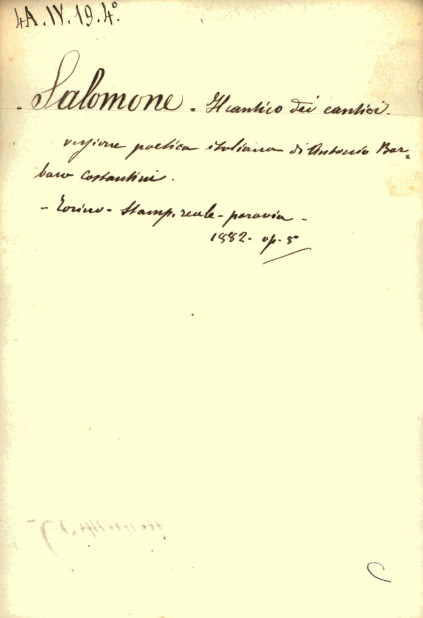 4A. IV. 19. 4º.
- Salomone - Il cantico dei cantici -
versione poetica italiana di Antonio Bar=
baro costantini.
- Torino - Stamp. reale - paravia -
1882 - op. 8º
C